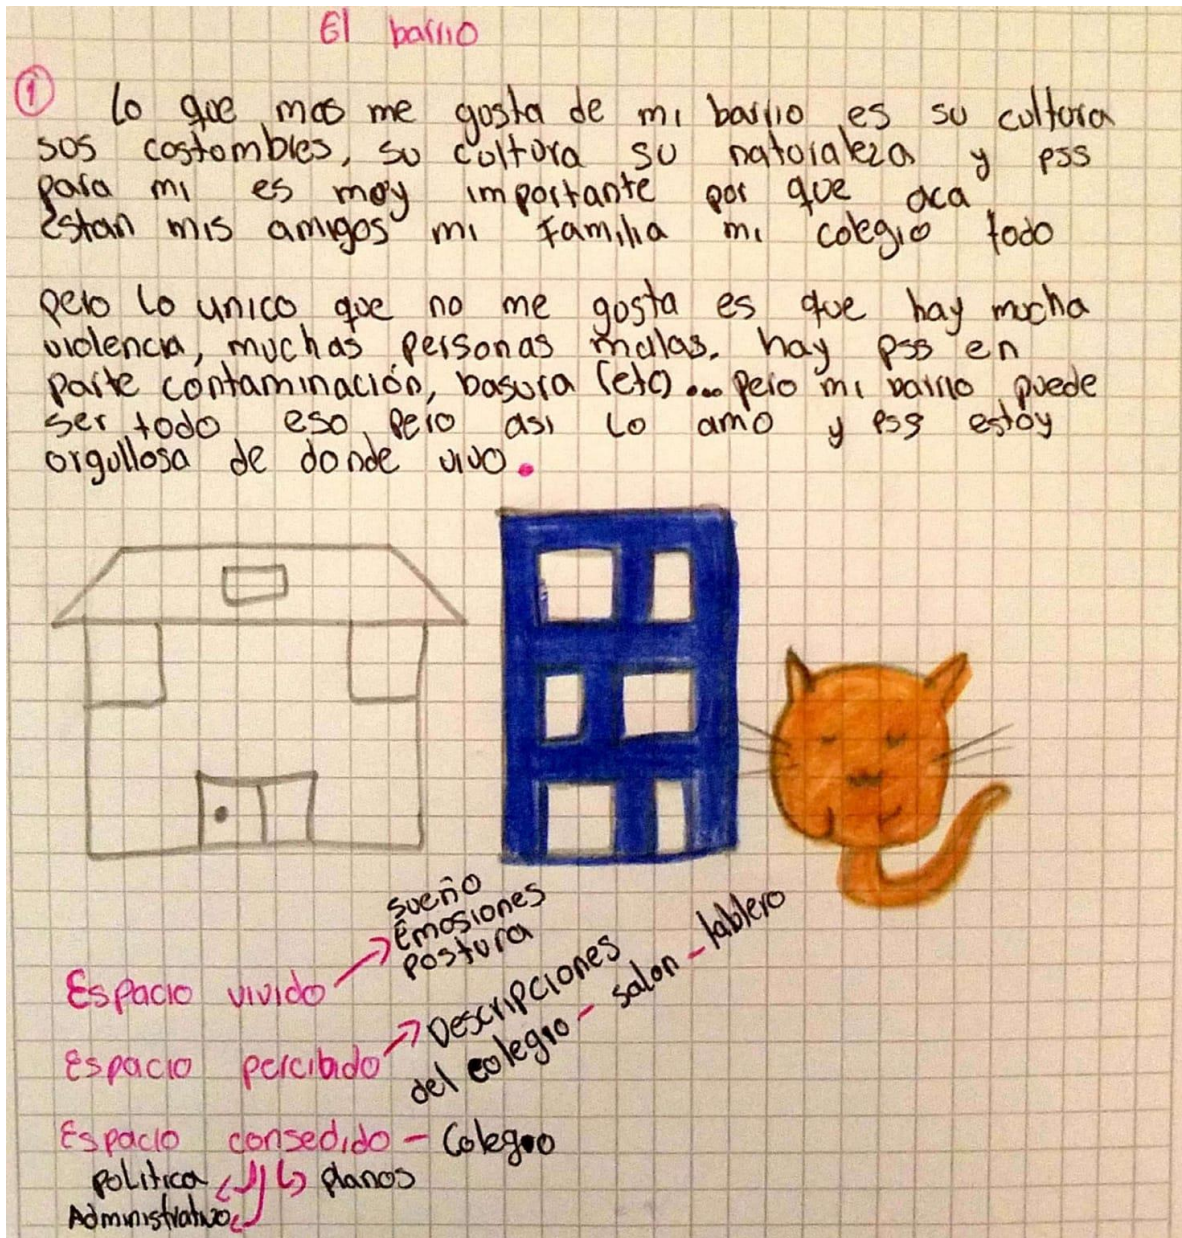 El barrio
1 Lo que mas me gusta de mi barrio es su cultura
sus costumbles, su cultura su naturaleza y pss
para mi es muy importante por que aca
estan mis amigos mi familia mi colegio todo
pero lo unico que no me gusta es que hay mucha
violencia, muchas personas malas. hay pss en
parte contaminación, basura (etc)... pero mi barrio puede
ser todo eso pero asi lo amo y pss estoy
orgullosa de donde vivo.
sueño
Emosiones
postura
Espacio vivido
Descripciones
del colegio - salon - tablero
Espacio percibido
Espacio consedido - Colegio
politica planos
Administrativo